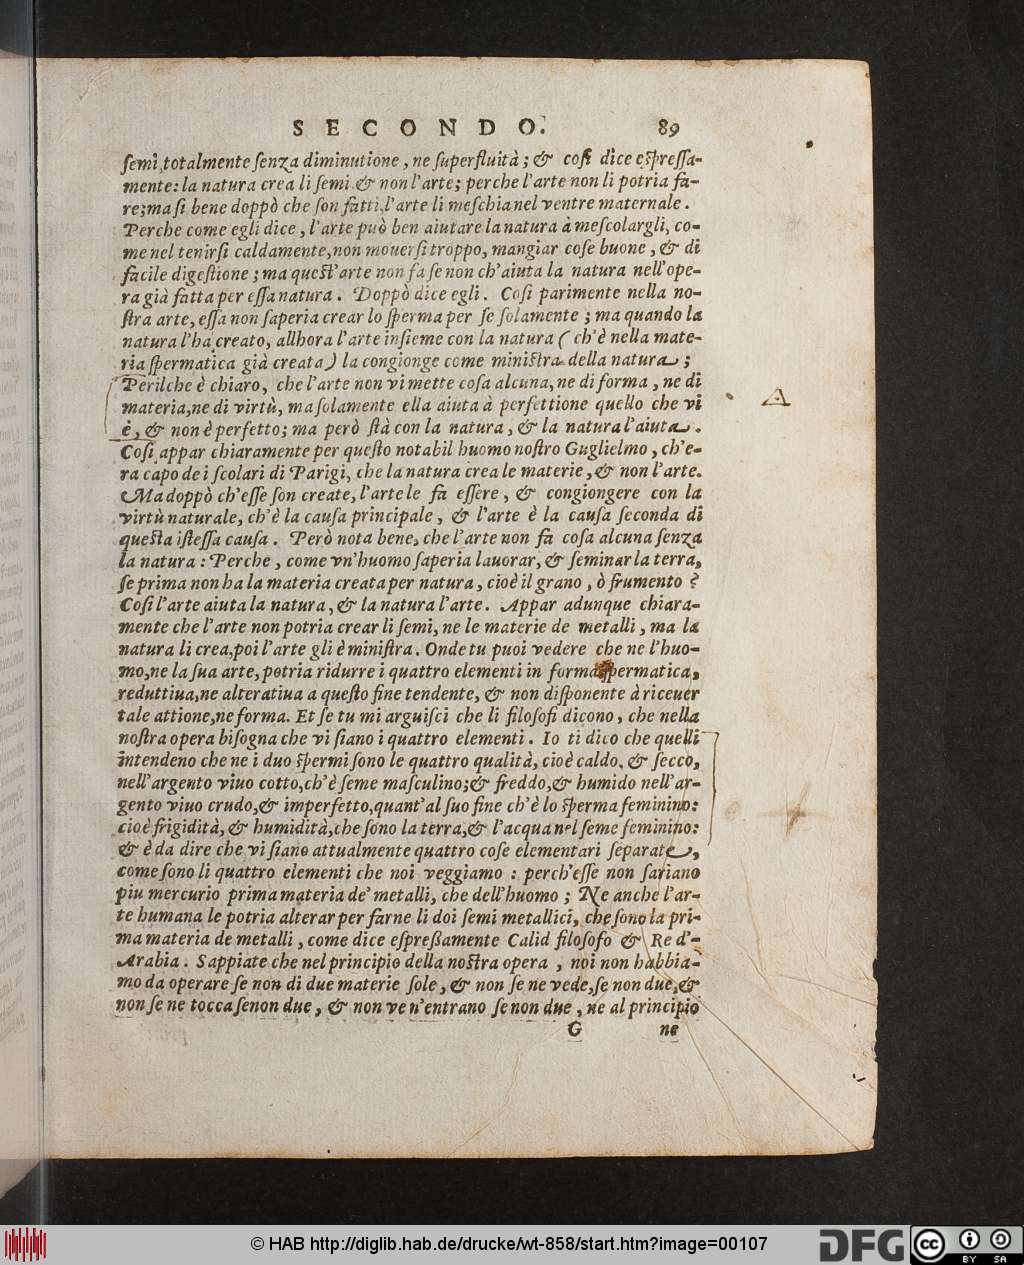 SECONDO. 89
ſemi, totalmente ſenza diminutione, ne ſuperfluità; & coſi dice eſpreſſa-
mente: la natura crea li ſemi & non l'arte; perche l'arte non li potria fa-
re; ma ſi bene doppò che ſon fatti, l'arte li meſchia nel ventre maternale.
Perche come egli dice, l'arte può ben aiutare la natura à meſcolargli, co-
me nel tenirſi caldamente, non mouerſi troppo, mangiar coſe buone, & di
facile digeſtione; ma queſt'arte non fa ſe non ch'aiuta la natura nell'ope-
ra già fatta per eſſa natura. Doppò dice egli. Coſi parimente nella no-
ſtra arte, eſſa non ſaperia crear lo ſperma per ſe ſolamente; ma quando la
natura l'ha creato, allhora l'arte inſieme con la natura (ch'è nella mate-
ria ſpermatica già creata) la congionge come miniſtra della natura;
Perilche è chiaro, che l'arte non vi mette coſa alcuna, ne di forma, ne di
materia, ne di virtù, ma ſolamente ella aiuta à perfettione quello che vi
è, & non è perfetto; ma però ſtà con la natura, & la natura l'aiuta.
Coſi appar chiaramente per queſto notabil huomo noſtro Guglielmo, ch'e-
ra capo de i ſcolari di Parigi, che la natura crea le materie, & non l'arte.
Ma doppò ch'eſſe ſon create, l'arte le fa eſſere, & congiongere con la
virtù naturale, ch'è la cauſa principale, & l'arte è la cauſa ſeconda di
queſta iſteſſa cauſa. Però nota bene, che l'arte non fa coſa alcuna ſenza
la natura: Perche, come vn'huomo ſaperia lauorar, & ſeminar la terra,
ſe prima non ha la materia creata per natura, cioè il grano, ò frumento?
Coſi l'arte aiuta la natura, & la natura l'arte. Appar adunque chiara-
mente che l'arte non potria crear li ſemi, ne le materie de metalli, ma la
natura li crea, poi l'arte gli è miniſtra. Onde tu puoi vedere che ne l'huo-
mo, ne la ſua arte, potria ridurre i quattro elementi in forma ſpermatica,
reduttiua, ne alteratiua a queſto fine tendente, & non diſponente à riceuer
tale attione, ne forma. Et ſe tu mi arguiſci che li filoſofi dicono, che nella
noſtra opera biſogna che vi ſiano i quattro elementi. Io ti dico che quelli
intendeno che ne i duo ſpermi ſono le quattro qualità, cioè caldo, & ſecco,
nell'argento viuo cotto, ch'è ſeme maſculino; & freddo, & humido nell'ar-
gento viuo crudo, & imperfetto, quant'al ſuo fine ch'è lo ſperma feminino:
cioè frigidità, & humidità, che ſono la terra, & l'acqua nel ſeme feminino:
& è da dire che vi ſiano attualmente quattro coſe elementari ſeparate,
come ſono li quattro elementi che noi veggiamo: perch'eſſe non ſariano
piu mercurio prima materia de' metalli, che dell'huomo; Ne anche l'ar-
te humana le potria alterar per farne li doi ſemi metallici, che ſono la pri-
ma materia de metalli, come dice eſpreßamente Calid filoſofo & Re d'-
Arabia. Sappiate che nel principio della noſtra opera, noi non habbia-
mo da operare ſe non di due materie ſole, & non ſe ne vede, ſe non due, &
non ſe ne tocca ſenon due, & non ve n'entrano ſe non due, ne al principio
G ne
© HAB http://diglib.hab.de/drucke/wt-858/start.htm?image=00107
DFG cc BY SA